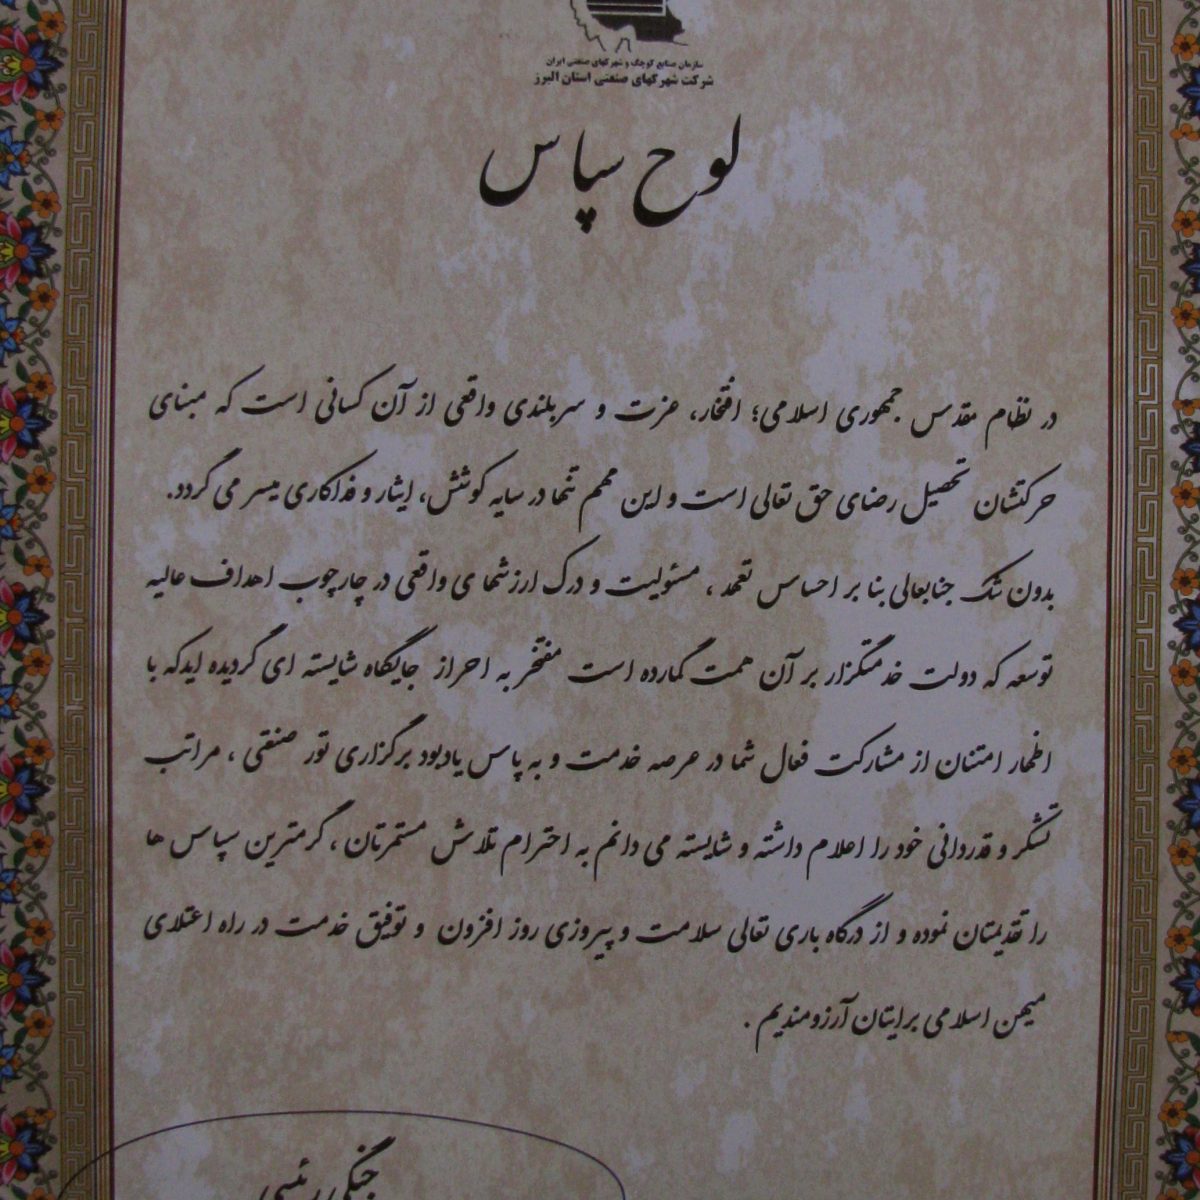 سازمان صنایع کوچک و شهرکهای صنعتی ایران
شرکت شهرکهای صنعتی استان البرز
لوح سپاس
در نظام مقدس جمهوری اسلامی؛ افتخار، عزت و سربلندی واقعی از آن کسانی است که مبنای
حرکتشان تحصیل رضای حق تعالی است و این مهم تنها در سایه کوشش، ایثار و فداکاری میسر می گردد.
بدون شک جنابعالی بنا بر احساس تعهد ، مسئولیت و درک ارزشهای واقعی در چارچوب اهداف عالیه
توسعه که دولت خدمتگزار بر آن همت گمارده است مفتخر به احراز جایگاه شایسته ای گردیده ایدکه با
اظهار امتنان از مشارکت فعال شما در عرصه خدمت و به پاس یادبود برگزاری تور صنعتی ، مراتب
تشکر و قدردانی خود را اعلام داشته و شایسته می دانم به احترام تلاش مستمرتان ، گرمترین سپاس ها
را تقدیمتان نموده و از درگاه باری تعالی سلامت و پیروزی روز افزون و توفیق خدمت در راه اعتلای
میهن اسلامی برایتان آرزومندیم .